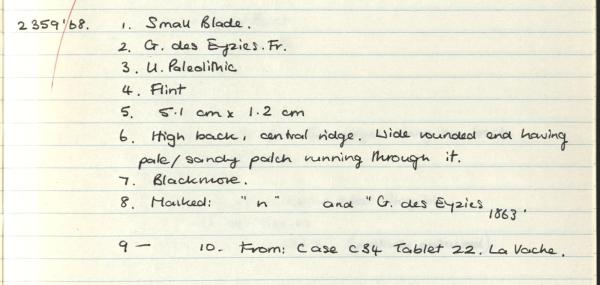 2359'68. 1. Small Blade.
2. G. des Eyzies. Fr.
3. U. Paleolithic
4. Flint
5. 5.1 cm x 1.2 cm
6. High back, central ridge. Wide rounded end having
pale/sandy patch running through it.
7. Blackmore.
8. Marked: "n" and "G. des Eyzies 1863'
9 — 10. From: Case C34 Tablet 22. La Vache.